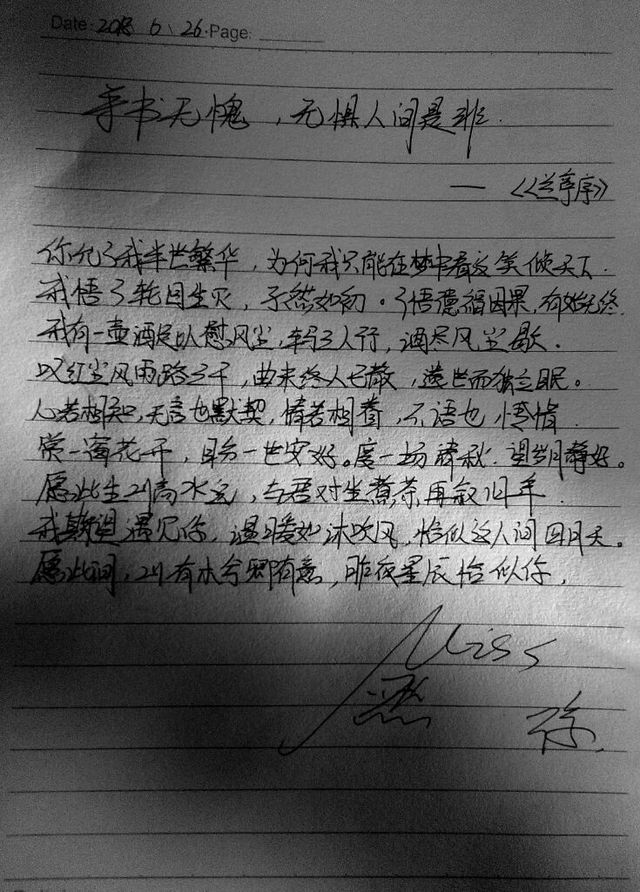 Date 2018 6 26 Page:
手书无愧，无惧人间是非.
——《兰亭序》
你允了我半世繁华，为何我只能在梦中看这笑倾天下.
我悟了轮回生灭，孑然如初。了悟德福因果，有始无终.
我有一壶酒足以慰风尘，三人行，酒尽风尘歇.
叹红尘风雨路三千，曲未终人已散，遗世而独立眠。
心若相知，无言也默契，情若相眷，不语也怜惜.
赏一窗花开，自分一世安好。度一场清秋，望岁月静好。
愿此生山高水远，与君对坐煮茶再叙旧年.
我期望遇见你，温暖如沐吹风，恰似这人间四月天。
愿此间，山有木兮卿有意，昨夜星辰恰似你.
Miss
你.